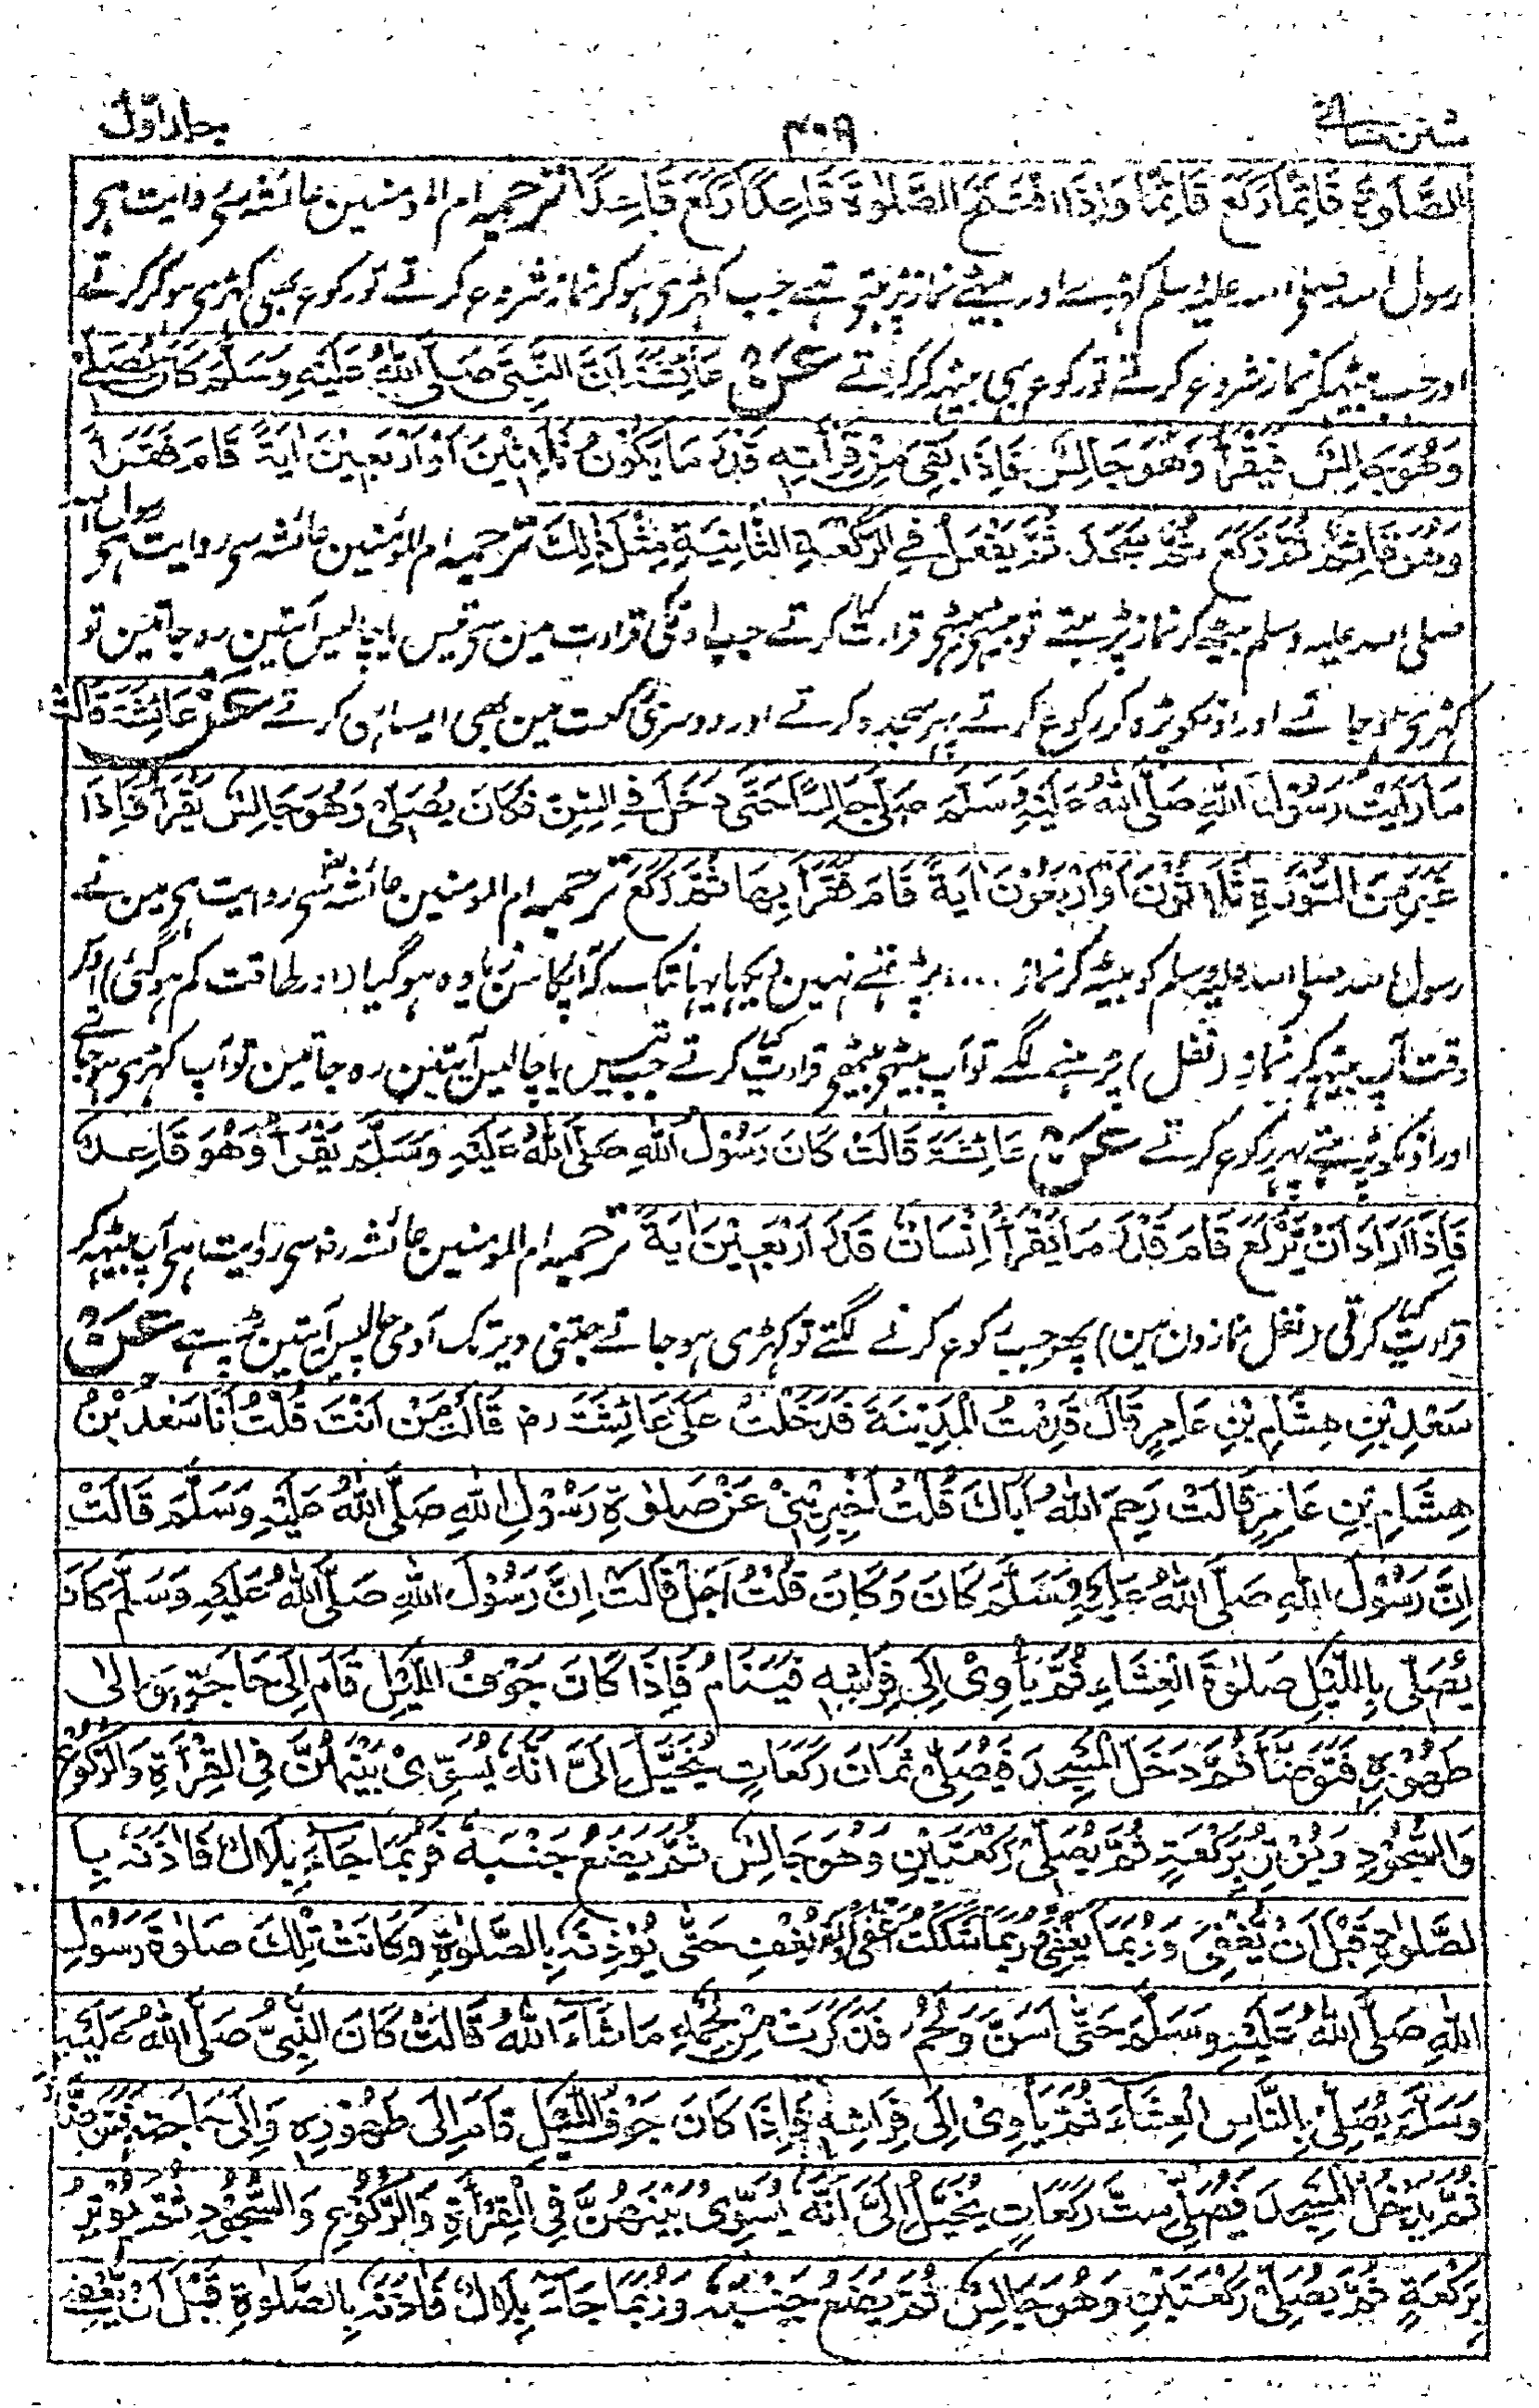 سنن نسائے ۴۰۹ جلد اوّل
الصَّلٰوةَ قَائِمًا رَكَعَ قَائِمًا وَاِذَا افْتَتَحَ الصَّلٰوةَ قَاعِدًا رَكَعَ قَاعِدًا ترجمہ ام المومنین عائشہ سے روایت ہے
رسول اللہ صلی اللہ علیہ وسلم کھڑے اور بیٹھے نماز پڑہتے تھے جب کہڑی ہو کر نماز شروع کرتے تو رکوع بھی کہڑی ہو کر کرتے
اور جب بیٹھکر نماز شروع کرتے تو رکوع بھی بیٹھ کر کرتے عَنْ عَائِشَةَ اَنَّ النَّبِيَّ صَلَّى اللّٰهُ عَلَيْهِ وَسَلَّمَ كَانَ يُصَلِّيْ
وَهُوَ جَالِسٌ فَيَقْرَأُ وَهُوَ جَالِسٌ فَاِذَا بَقِيَ مِنْ قِرَأَتِهٖ قَدْرَ مَا يَكُوْنُ ثَلَاثِيْنَ اَوْ اَرْبَعِيْنَ اٰيَةً قَامَ فَقَرَأَ
وَهُوَ قَائِمٌ ثُمَّ رَكَعَ ثُمَّ سَجَدَ ثُمَّ يَفْعَلُ فِي الرَّكْعَةِ الثَّانِيَةِ مِثْلَ ذٰلِكَ ترجمہ ام المؤمنین عائشہ سے روایت ہے رسول اللہ
صلی اللہ علیہ وسلم بیٹھے کر نماز پڑہتے تو بیٹھے بیٹھے قرادت کرتے جب اونکی قرادت مین سے تیس یا چالیس آیتین رہ جاتین تو
کہڑی ہو جاتے اور اونکو پڑہ کر رکوع کرتے پہر سجدہ کرتے اور دوسری رکعت مین بھی ایسا ہی کرتے عَنْ عَائِشَةَ قَالَتْ
مَا رَاَيْتُ رَسُوْلَ اللّٰهِ صَلَّى اللّٰهُ عَلَيْهِ وَسَلَّمَ صَلّٰى جَالِسًا حَتّٰى دَخَلَ فِي السِّنِّ فَكَانَ يُصَلِّيْ وَهُوَ جَالِسٌ يَقْرَأُ فَاِذَا
غَبَرَ مِنَ السُّوْرَةِ ثَلَاثُوْنَ اَوْ اَرْبَعُوْنَ اٰيَةً قَامَ فَقَرَأَ بِهَا ثُمَّ رَكَعَ ترجمہ ام المومنین عائشہ سے روایت ہے مین نے
رسول اللہ صلی اللہ علیہ وسلم کو بیٹھ کر نماز .... پڑہتے نہین دیکہا یہانتک کہ آپکا سن زیادہ ہو گیا (اور طاقت کم ہوگئی)
وقت آپ بیٹھکر نماز (نفل) پڑہنے لگے تو آپ بیٹھے بیٹھے قرادت کرتے جب تیس یا چالیس آیتین رہ جاتین تو آپ کہڑی ہو جاتے
اور اونکو پڑہتے پہر رکوع کرتے عَنْ عَائِشَةَ قَالَتْ كَانَ رَسُوْلُ اللّٰهِ صَلَّى اللّٰهُ عَلَيْهِ وَسَلَّمَ يَقْرَأُ وَهُوَ قَاعِدٌ
فَاِذَا اَرَادَ اَنْ يَّرْكَعَ قَامَ قَدْرَ مَا يَقْرَأُ اِنْسَانٌ قَدْرَ اَرْبَعِيْنَ اٰيَةً ترجمہ ام المومنین عائشہ رضہ سے روایت ہے آپ بیٹھکر
قرادت کرتے (نفل نمازون مین) پھر جب رکوع کرنے لگتے تو کہڑی ہو جاتے جتنی دیر تک آدمی چالیس آیتین پڑہتے عَنْ
سَعْدِ بْنِ هِشَامِ بْنِ عَامِرٍ قَالَ قَدِمْتُ الْمَدِيْنَةَ فَدَخَلْتُ عَلٰى عَائِشَةَ رض قَالَتْ مَنْ اَنْتَ قُلْتُ اَنَا سَعْدُ بْنُ
هِشَامِ بْنِ عَامِرٍ قَالَتْ رَحِمَ اللّٰهُ اَبَاكَ قُلْتُ اَخْبِرِيْنِيْ عَنْ صَلٰوةِ رَسُوْلِ اللّٰهِ صَلَّى اللّٰهُ عَلَيْهِ وَسَلَّمَ قَالَتْ
اِنَّ رَسُوْلَ اللّٰهِ صَلَّى اللّٰهُ عَلَيْهِ وَسَلَّمَ كَانَ وَكَانَ قُلْتُ اَجَلْ قَالَتْ اِنَّ رَسُوْلَ اللّٰهِ صَلَّى اللّٰهُ عَلَيْهِ وَسَلَّمَ كَانَ
يُصَلِّيْ بِاللَّيْلِ صَلٰوةَ الْعِشَاءِ ثُمَّ يَأْوِيْ اِلٰى فِرَاشِهٖ فَيَنَامُ فَاِذَا كَانَ جَوْفُ اللَّيْلِ قَامَ اِلٰى حَاجَتِهٖ وَاِلٰى
طَهُوْرِهٖ فَتَوَضَّأَ ثُمَّ دَخَلَ الْمَسْجِدَ فَيُصَلِّيْ ثَمَانَ رَكَعَاتٍ يُخَيَّلُ اِلَيَّ اَنَّهٗ يُسَوِّيْ بَيْنَهُنَّ فِي الْقِرْأَةِ وَالرُّكُوْعِ
وَالسُّجُوْدِ وَيُوْتِرُ بِرَكْعَةٍ ثُمَّ يُصَلِّيْ رَكْعَتَيْنِ وَهُوَ جَالِسٌ ثُمَّ يَضَعُ جَنْبَهٗ فَرُبَّمَا جَاءَ بِلَالٌ فَاٰذَنَهٗ بِا
لصَّلٰوةِ قَبْلَ اَنْ يُّغْفِيَ وَرُبَّمَا يُغْفِيْ وَرُبَّمَا شَكَكْتُ اَغْفٰى اَوْ لَمْ يُغْفِ حَتّٰى يُؤْذِنَهٗ بِالصَّلٰوةِ وَكَانَتْ تِلْكَ صَلٰوةَ رَسُوْلِ
اللّٰهِ صَلَّى اللّٰهُ عَلَيْهِ وَسَلَّمَ حَتّٰى اَسَنَّ وَلَحُمَ فَذَكَرَتْ مِنْ لَحْمِهٖ مَا شَاءَ اللّٰهُ قَالَتْ كَانَ النَّبِيُّ صَلَّى اللّٰهُ عَلَيْهِ
وَسَلَّمَ يُصَلِّيْ بِالنَّاسِ الْعِشَاءَ ثُمَّ يَأْوِيْ اِلٰى فِرَاشِهٖ فَاِذَا كَانَ جَوْفُ اللَّيْلِ قَامَ اِلٰى طَهُوْرِهٖ وَاِلٰى حَاجَتِهٖ فَتَوَضَّأَ
ثُمَّ يَدْخُلُ الْمَسْجِدَ فَيُصَلِّيْ سِتَّ رَكَعَاتٍ يُخَيَّلُ اِلَيَّ اَنَّهٗ يُسَوِّيْ بَيْنَهُنَّ فِي الْقِرْأَةِ وَالرُّكُوْعِ وَالسُّجُوْدِ ثُمَّ يُوْتِرُ
بِرَكْعَةٍ ثُمَّ يُصَلِّيْ رَكْعَتَيْنِ وَهُوَ جَالِسٌ ثُمَّ يَضَعُ جَنْبَهٗ وَرُبَّمَا جَاءَ بِلَالٌ فَاٰذَنَهٗ بِالصَّلٰوةِ قَبْلَ اَنْ يُّغْفِيَ